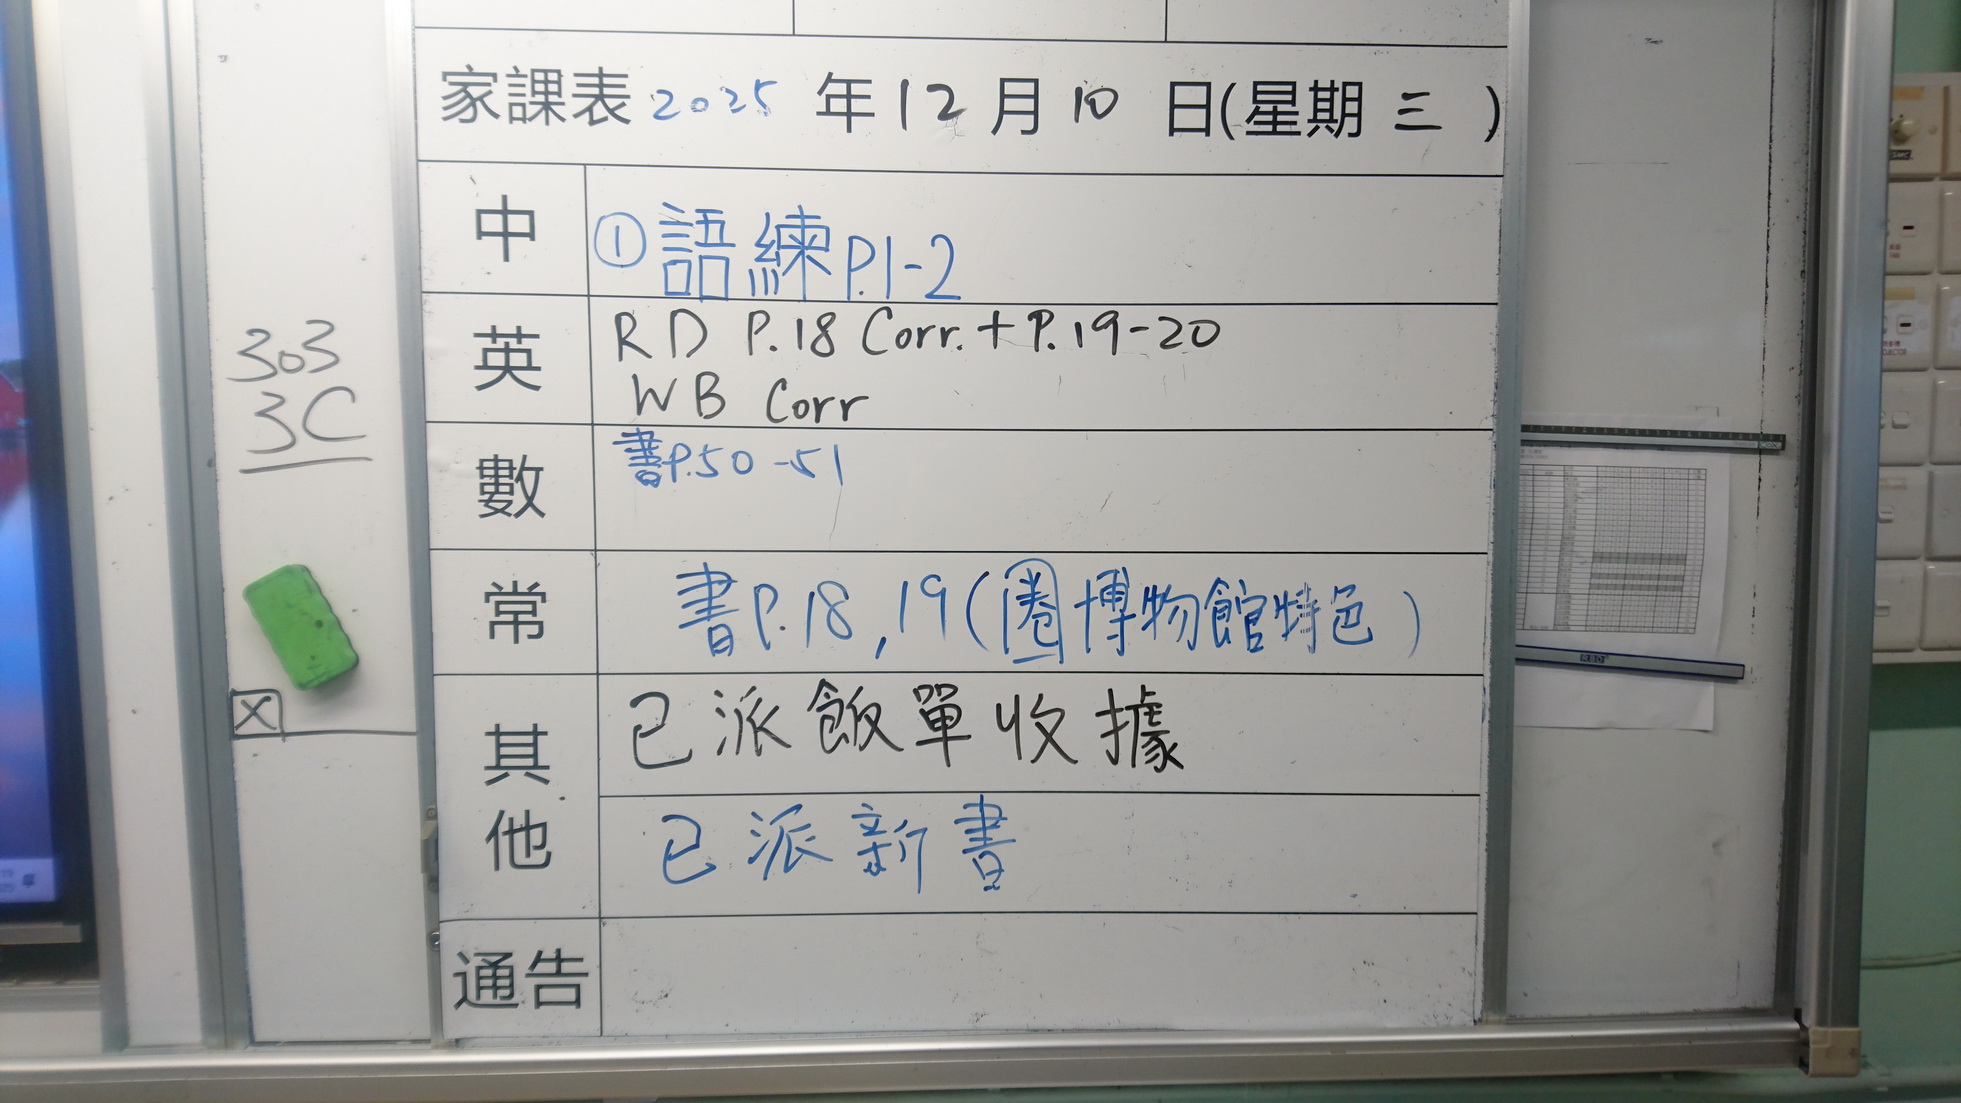 家課表 2025 年 12 月 10 日(星期 三 )
中 ① 語練 P.1-2
英 RD P.18 Corr. + P.19-20
WB Corr
數 書P.50-51
常 書P.18, 19 (圈博物館特色)
其他 已派飯單收據
已派新書
通告
303
3C
RBD